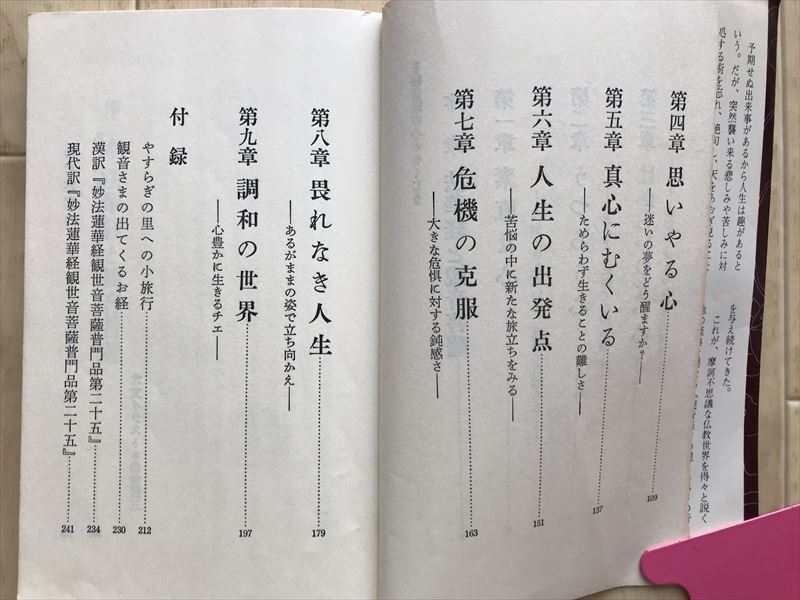 予期せぬ出来事があるから人生は趣があると
いう。だが、突然襲い来る悲しみや苦しみに対
処する術を忘れ、絶句し、天をあおぎ見ること
を与え続けてきた。
これが、摩訶不思議な仏教世界を得々と説く
第四章 思いやる心 109
――迷いの夢をどう醒ますか?――
第五章 真心にむくいる 137
――ためらわず生きることの難しさ――
第六章 人生の出発点 151
――苦悩の中に新たな旅立ちをみる――
第七章 危機の克服 163
――大きな危惧に対する鈍感さ――
第八章 畏れなき人生 179
――あるがままの姿で立ち向かえ――
第九章 調和の世界 197
――心豊かに生きるチエ――
付録
やすらぎの里への小旅行 212
観音さまの出てくるお経 230
漢訳『妙法蓮華経観世音菩薩普門品第二十五』 234
現代訳『妙法蓮華経観世音菩薩普門品第二十五』 241